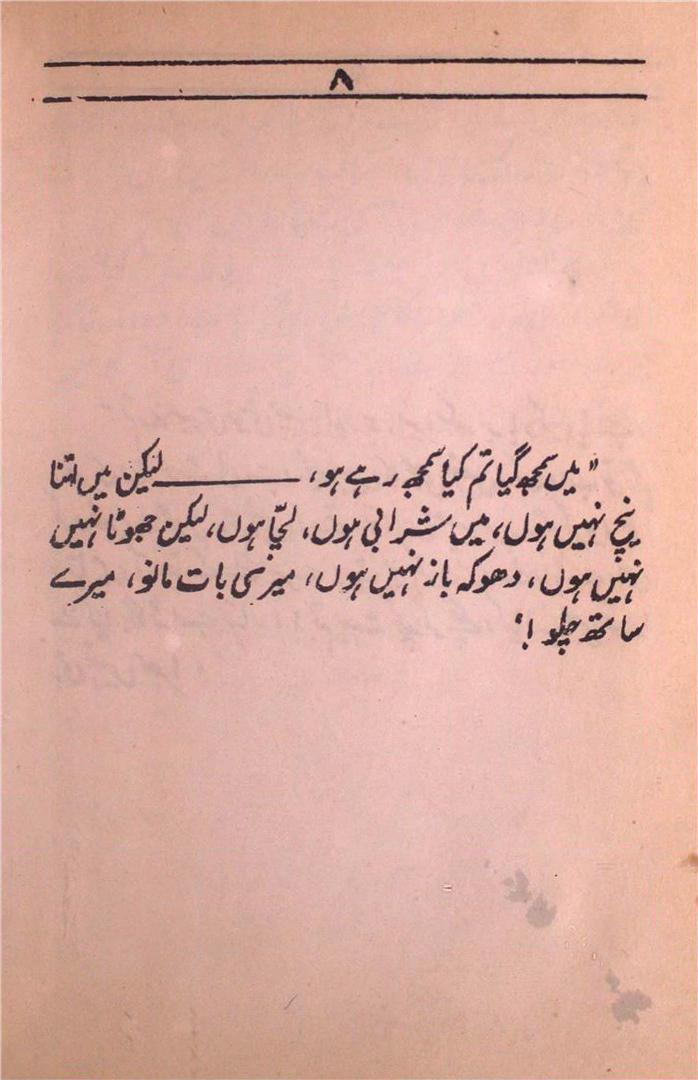 ۸
"میں سمجھ گیا تم کیا سمجھ رہے ہو، ———— لیکن میں اتنا
نیچ نہیں ہوں، میں شرابی ہوں، لچّا ہوں، لیکن جھوٹا نہیں
نہیں ہوں، دھوکہ باز نہیں ہوں، میری بات مانو، میرے
ساتھ چلو!'